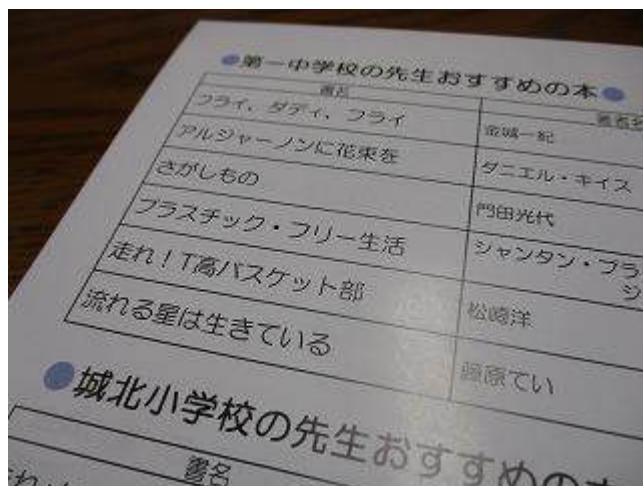 ●第一中学校の先生おすすめの本●
書名 著者名
フライ、ダディ、フライ 金城一紀
アルジャーノンに花束を ダニエル・キイス
さがしもの 門田光代
プラスチック・フリー生活 シャンタン・プラ
ジ
走れ！T高バスケット部 松崎洋
流れる星は生きている 藤原てい
●城北小学校の先生おすすめの本
書名